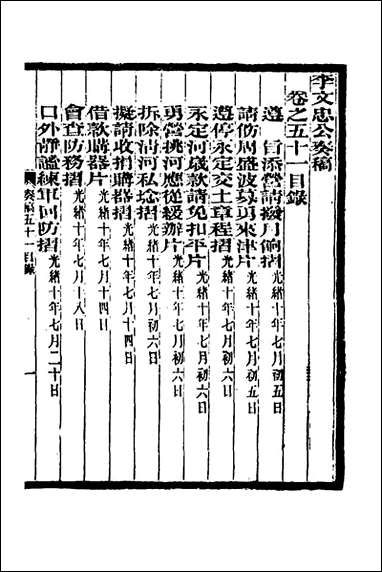 李文忠公奏稿
卷之五十一目錄
遵旨添營請撥月餉摺光緒十年七月初五日
請飭周盛波募勇來津片光緒十年七月初五日
遵停永定交土章程摺光緒十年七月初六日
永定河歲款請免扣平片光緒十年七月初六日
勇營挑河應從緩辦片光緒十年七月初六日
拆除沽河私埝摺光緒十年七月初六日
擬請收捐購器摺光緒十年七月十四日
借款購器片光緒十年七月十四日
會查防務摺光緒十年七月十八日
口外靜謐練軍回防摺光緒十年七月二十日
奏稿五十一目錄
一